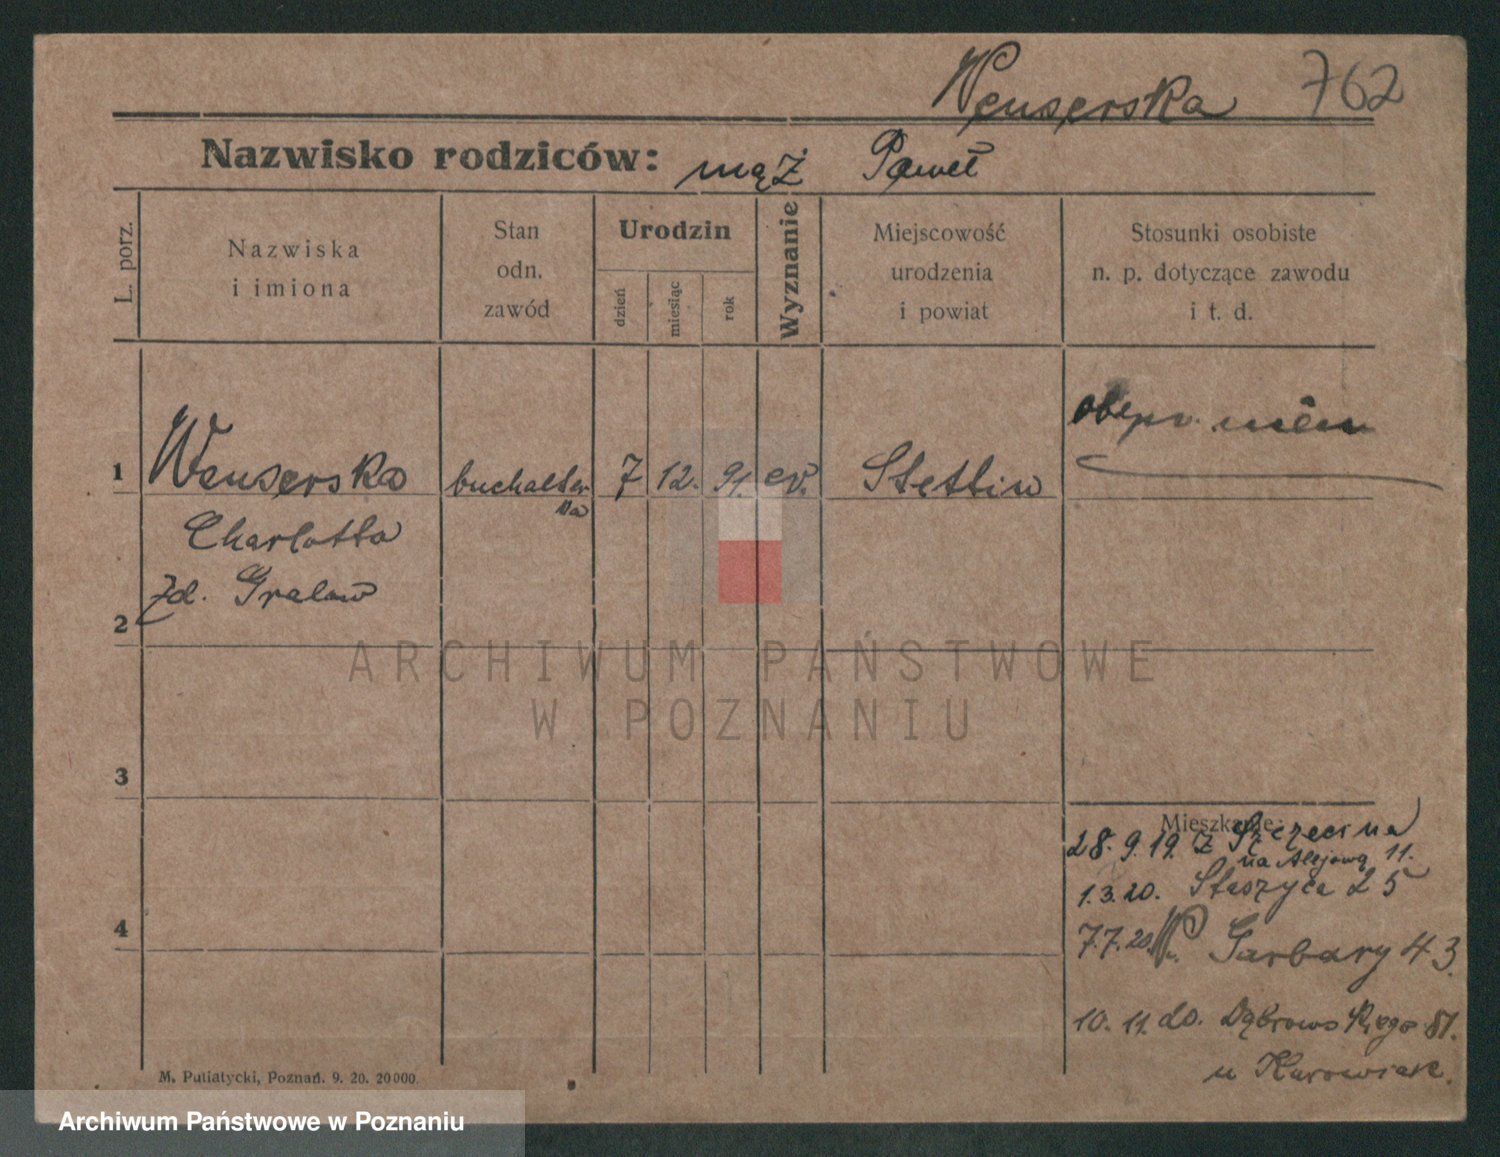 Wenserska 762
Nazwisko rodziców: mąż Paweł
L. porz.
Nazwiska
i imiona
Stan
odn.
zawód
Urodzin
dzień
miesiąc
rok
Wyznanie
Miejscowość
urodzenia
i powiat
Stosunki osobiste
n. p. dotyczące zawodu
i t. d.
1 Wenserska buchalter 7 12. 91. ev. Stettin
ka
Charlotta
zd. Gralow
2
3
4
Mieszkanie:
28. 9. 19. z Szczecina
na Alejową 11.
1. 3. 20. Staszyca 25
7.7.20. W. Garbary 43.
10. 11. 20. Dąbrowskiego 81.
u Kurowiak.
M. Putiatycki, Poznań. 9. 20. 20000.
ARCHIWUM PAŃSTWOWE
W POZNANIU
Archiwum Państwowe w Poznaniu